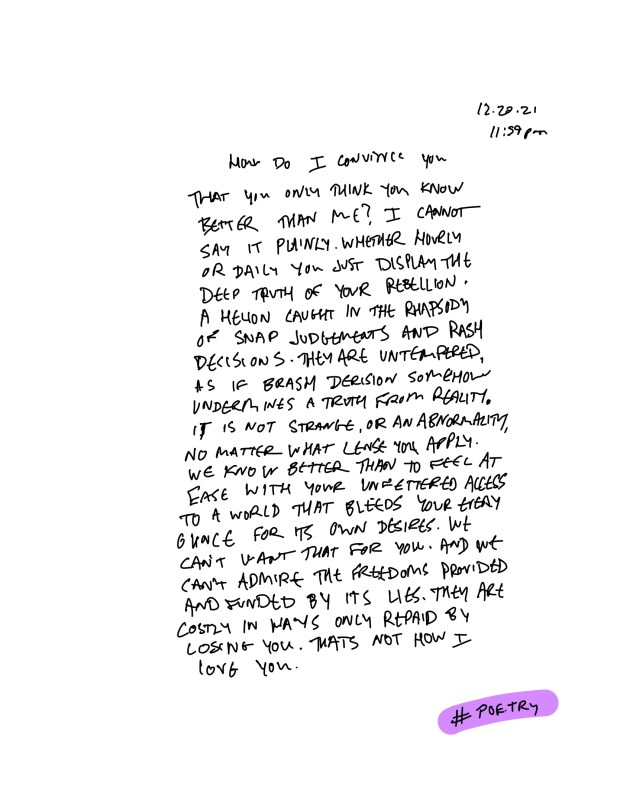 12.20.21
11:59pm
HOW DO I CONVINCE YOU
THAT YOU ONLY THINK YOU KNOW
BETTER THAN ME? I CANNOT
SAY IT PLAINLY. WHETHER HOURLY
OR DAILY YOU JUST DISPLAY THE
DEEP TRUTH OF YOUR REBELLION.
A HELION CAUGHT IN THE RHAPSODY
OF SNAP JUDGEMENTS AND RASH
DECISIONS. THEY ARE UNTEMPERED,
AS IF BRASH DERISION SOMEHOW
UNDERMINES A TRUTH FROM REALITY.
IT IS NOT STRANGE, OR AN ABNORMALITY,
NO MATTER WHAT LENSE YOU APPLY.
WE KNOW BETTER THAN TO FEEL AT
EASE WITH YOUR UNFETTERED ACCESS
TO A WORLD THAT BLEEDS YOUR EVERY
OUNCE FOR ITS OWN DESIRES. WE
CAN'T WANT THAT FOR YOU. AND WE
CAN'T ADMIRE THE FREEDOMS PROVIDED
AND FUNDED BY ITS LIES. THEY ARE
COSTLY IN WAYS ONLY REPAID BY
LOSING YOU. THATS NOT HOW I
LOVE YOU.
# POETRY